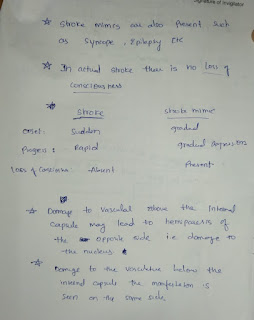 Signature of Invigilator
☆ Stroke mimics are also Present such
as Syncope, Epilepsy Etc
☆ In actual stroke there is no Loss of
Consciousness
Stroke Stroke mimic
onset: Sudden gradual
Progress: Rapid gradual
Loss of Conscious: Absent Present.
☆ Damage to vascular above the Internal
Capsule may lead to hemiparesis of
the opposite side i.e damage to
the nucleus
☆ Damage to the vasculature below the
internal capsule the manifestation is
seen on the same side.